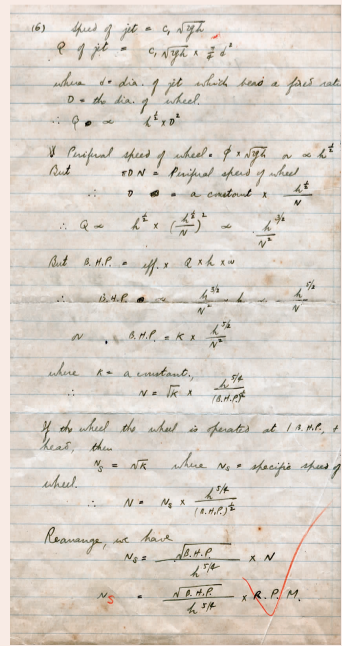 (6) speed of jet = c, √2gh
Q of jet = c, √2gh × π/4 d²
where d = dia. of jet which bears a fixed rati
D = the dia. of wheel.
∴ Q ∝ h^½ × D²
V Perifiral speed of wheel = φ × √2gh or ∝ h^½
But πDN = Perifiral speed of wheel
∴ D = a constant × h^½/N
∴ Q ∝ h^½ × (h^½/N)² ∝ h^3/2/N²
But B.H.P. = eff. × Q × h × w
∴ B.H.P. ∝ h^3/2/N² · h ∝ h^5/2/N²
or B.H.P. = K × h^5/2/N²
where K = a constant,
∴ N = √K × h^5/4/(B.H.P.)^½
If the wheel the wheel is operated at 1 B.H.P. +
head, then
Ns = √K where Ns = specific speed of
wheel.
∴ N = Ns × h^5/4/(B.H.P.)^½
Rearrange, we have
Ns = √B.H.P./h^5/4 × N
Ns = √B.H.P./h^5/4 × R.P.M.